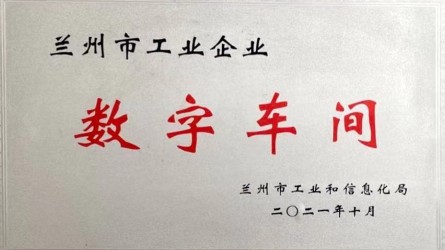 兰州市工业企业
数字车间
兰州市工业和信息化局
二〇二一年十月